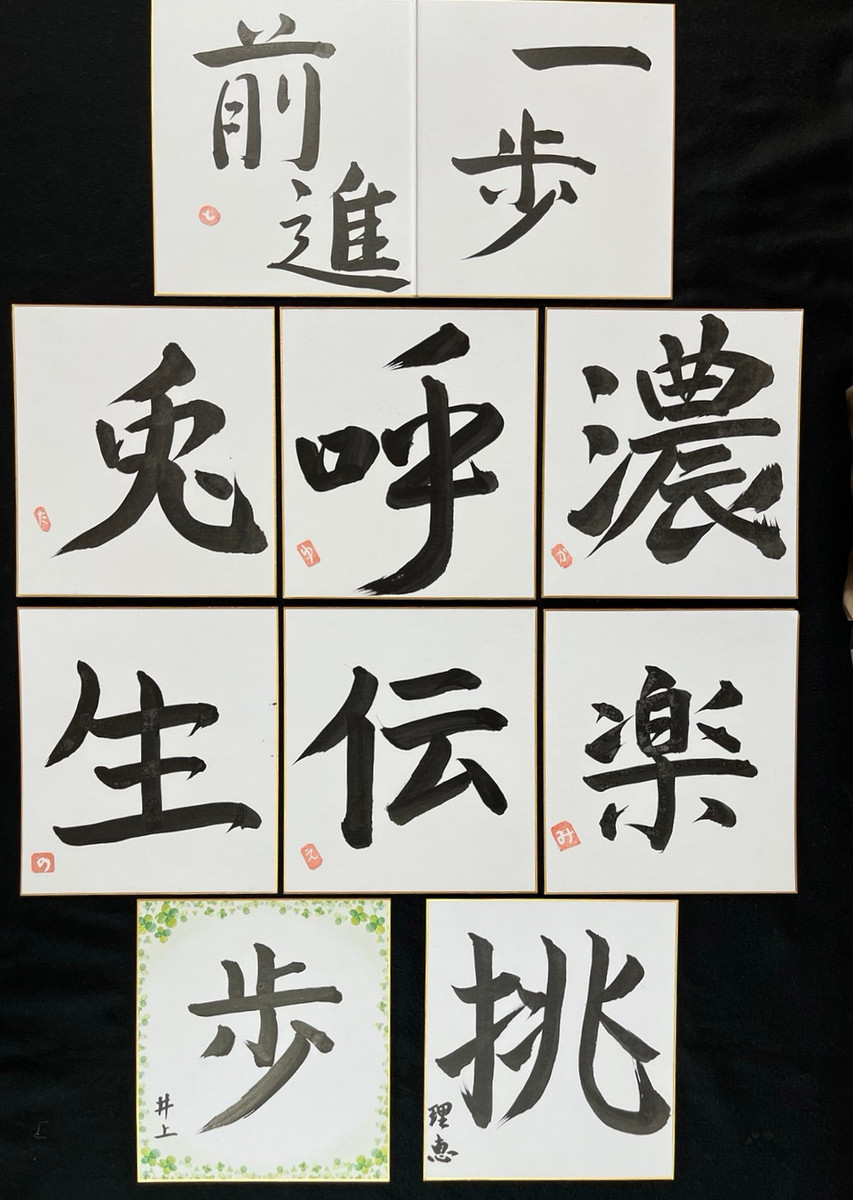 一歩
前進
と
濃
か
呼
ゆ
兎
た
楽
み
伝
え
生
の
挑
理恵
歩
井上